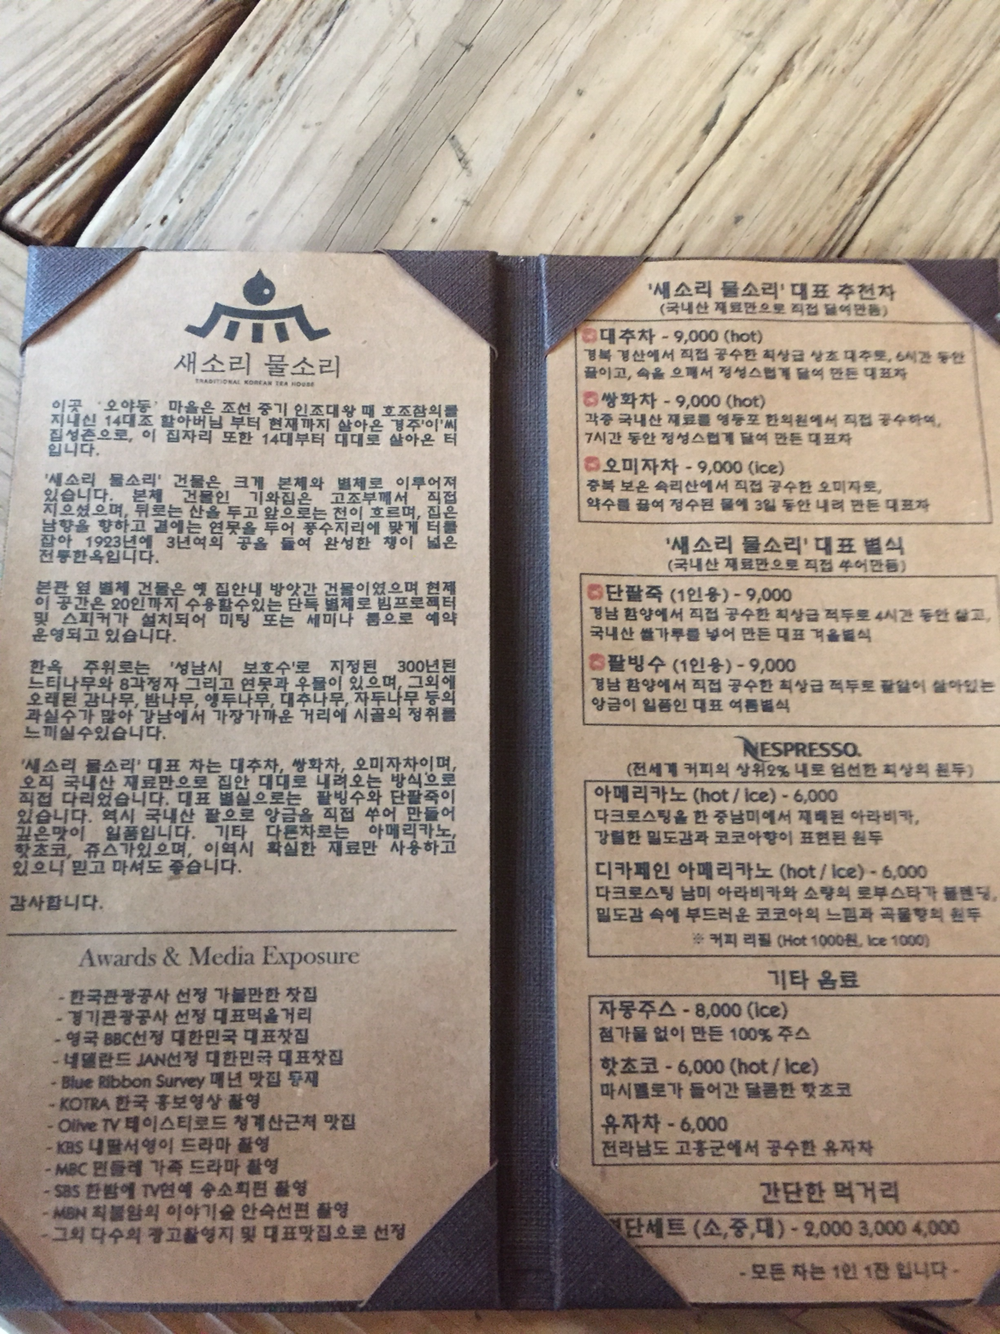 새소리 물소리
TRADITIONAL KOREAN TEA HOUSE
이곳 '오야동' 마을은 조선 중기 인조대왕 때 호조참의를
지내신 14대조 할아버님 부터 현재까지 살아온 경주'이'씨
집성촌으로, 이 집자리 또한 14대부터 대대로 살아온 터
입니다.
'새소리 물소리' 건물은 크게 본체와 별체로 이루어져
있습니다. 본체 건물인 기와집은 고조부께서 직접
지으셨으며, 뒤로는 산을 두고 앞으로는 천이 흐르며, 집은
남향을 향하고 곁에는 연못을 두어 풍수지리에 맞게 터를
잡아 1923년에 3년여의 공을 들여 완성한 챙이 넓은
전통한옥입니다.
본관 옆 별체 건물은 옛 집안내 방앗간 건물이였으며 현재
이 공간은 20인까지 수용할수있는 단독 별체로 빔프로젝터
및 스피커가 설치되어 미팅 또는 세미나 룸으로 예약
운영되고 있습니다.
한옥 주위로는 '성남시 보호수'로 지정된 300년된
느티나무와 8각정자 그리고 연못과 우물이 있으며, 그외에
오래된 감나무, 밤나무, 앵두나무, 대추나무, 자두나무 등의
과실수가 많아 강남에서 가장가까운 거리에 시골의 정취를
느끼실수있습니다.
'새소리 물소리' 대표 차는 대추차, 쌍화차, 오미자차이며,
오직 국내산 재료만으로 집안 대대로 내려오는 방식으로
직접 다리었습니다. 대표 별실으로는 팥빙수와 단팥죽이
있습니다. 역시 국내산 팥으로 앙금을 직접 쑤어 만들어
깊은맛이 일품입니다. 기타 다른차로는 아메리카노,
핫초코, 쥬스가있으며, 이역시 확실한 재료만 사용하고
있으니 믿고 마셔도 좋습니다.
감사합니다.
Awards & Media Exposure
- 한국관광공사 선정 가볼만한 찻집
- 경기관광공사 선정 대표먹을거리
- 영국 BBC선정 대한민국 대표찻집
- 네델란드 JAN선정 대한민국 대표찻집
- Blue Ribbon Survey 매년 맛집 등재
- KOTRA 한국 홍보영상 촬영
- Olive TV 테이스티로드 청계산근처 맛집
- KBS 내딸서영이 드라마 촬영
- MBC 민들레 가족 드라마 촬영
- SBS 한밤에 TV연예 송소희편 촬영
- MBN 최불암의 이야기숲 안숙선편 촬영
- 그외 다수의 광고촬영지 및 대표맛집으로 선정
'새소리 물소리' 대표 추천차
(국내산 재료만으로 직접 달여만듬)
대추차 - 9,000 (hot)
경북 경산에서 직접 공수한 최상급 상초 대추로, 6시간 동안
끓이고, 속을 으깨서 정성스럽게 달여 만든 대표차
쌍화차 - 9,000 (hot)
각종 국내산 재료를 영등포 한의원에서 직접 공수하여,
7시간 동안 정성스럽게 달여 만든 대표차
오미자차 - 9,000 (ice)
충북 보은 속리산에서 직접 공수한 오미자로,
약수를 끓여 정수된 물에 3일 동안 내려 만든 대표차
'새소리 물소리' 대표 별식
(국내산 재료만으로 직접 쑤어만듬)
단팥죽 (1인용) - 9,000
경남 함양에서 직접 공수한 최상급 적두로 4시간 동안 삶고,
국내산 쌀가루를 넣어 만든 대표 겨울별식
팥빙수 (1인용) - 9,000
경남 함양에서 직접 공수한 최상급 적두로 팥알이 살아있는
앙금이 일품인 대표 여름별식
NESPRESSO.
(전세계 커피의 상위2% 내로 엄선한 최상의 원두)
아메리카노 (hot / ice) - 6,000
다크로스팅을 한 중남미에서 재배된 아라비카,
강렬한 밀도감과 코코아향이 표현된 원두
디카페인 아메리카노 (hot / ice) - 6,000
다크로스팅 남미 아라비카와 소량의 로부스타가 블렌딩,
밀도감 속에 부드러운 코코아의 느낌과 곡물향의 원두
※ 커피 리필 (Hot 1000원, Ice 1000)
기타 음료
자몽주스 - 8,000 (ice)
첨가물 없이 만든 100% 주스
핫초코 - 6,000 (hot / ice)
마시멜로가 들어간 달콤한 핫초코
유자차 - 6,000
전라남도 고흥군에서 공수한 유자차
간단한 먹거리
단세트 (소,중,대) - 2,000 3,000 4,000
- 모든 차는 1인 1잔 입니다 -